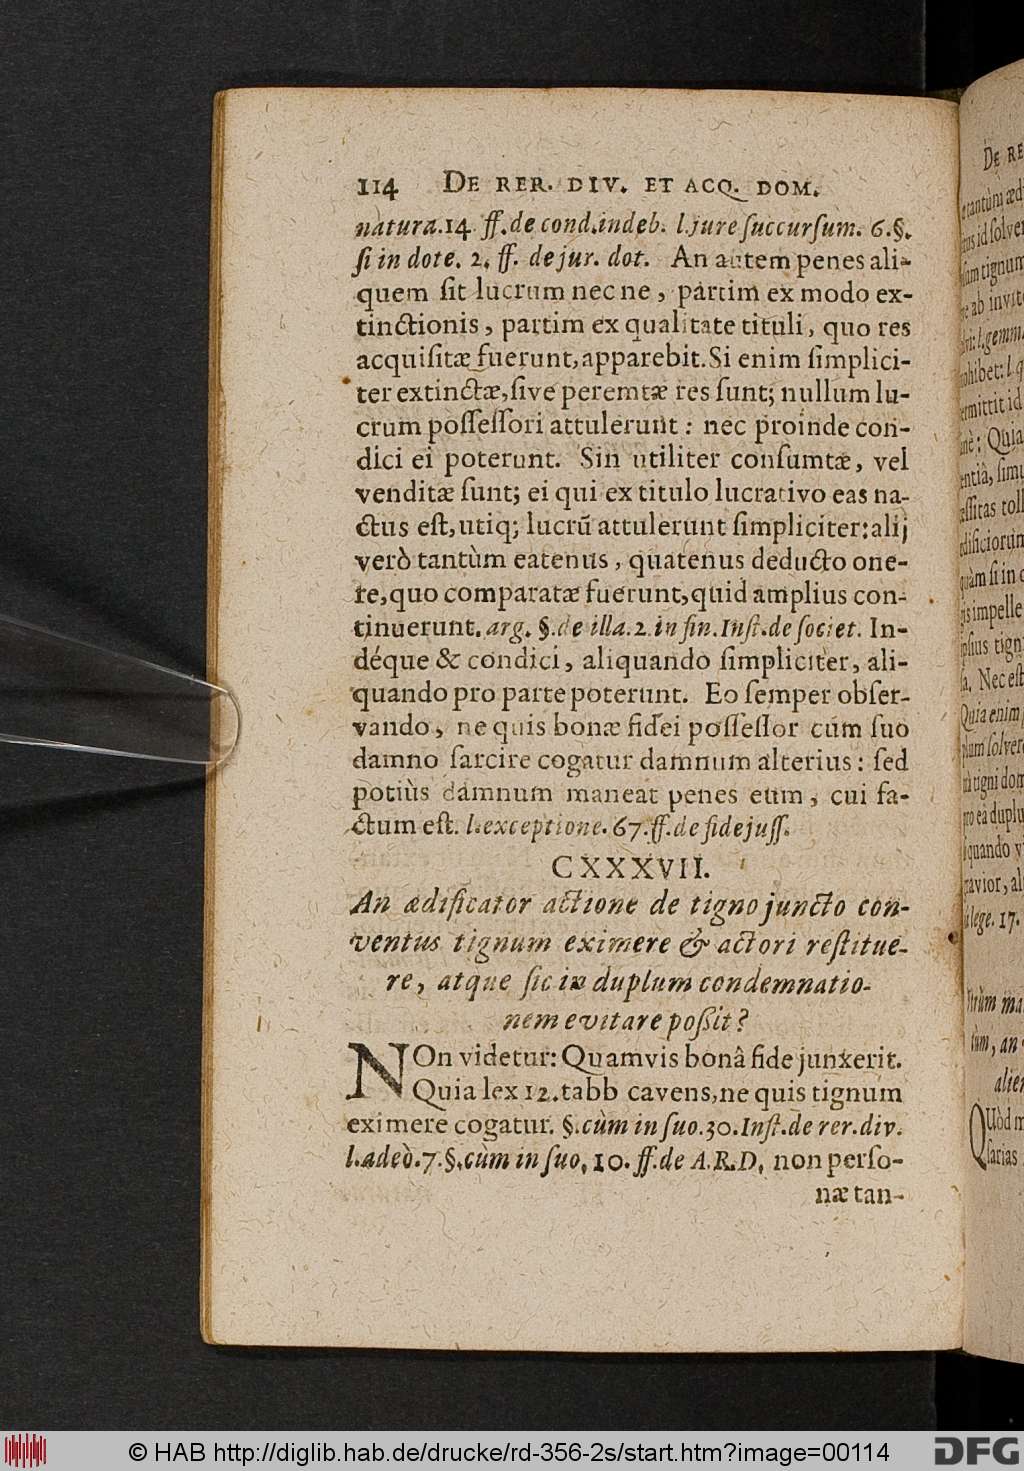 114 DE RER. DIV. ET ACQ. DOM.
natura.14 ff.de cond.indeb. l.jure succursum. 6.§.
si in dote. 2. ff. de jur. dot. An autem penes ali-
quem sit lucrum nec ne, partim ex modo ex-
tinctionis, partim ex qualitate tituli, quo res
acquisitæ fuerunt, apparebit. Si enim simplici-
ter extinctæ, sive peremtæ res sunt; nullum lu-
crum possessori attulerunt: nec proinde con-
dici ei poterunt. Sin utiliter consumtæ, vel
venditæ sunt; ei qui ex titulo lucrativo eas na-
ctus est, utiq; lucrũ attulerunt simpliciter: alij
verò tantùm eatenus, quatenus deducto one-
re, quo comparatæ fuerunt, quid amplius con-
tinuerunt. arg. §.de illa.2.in fin.Inst.de societ. In-
déque & condici, aliquando simpliciter, ali-
quando pro parte poterunt. Eo semper obser-
vando, ne quis bonæ fidei possessor cum suo
damno sarcire cogatur damnum alterius: sed
potiùs damnum maneat penes eum, cui fa-
ctum est. l.exceptione. 67.ff.de fidejuss.
CXXXVII.
An ædificator actione de tigno juncto con-
ventus tignum eximere & actori restitue-
re, atque sic in duplum condemnatio-
nem evitare possit?
NOn videtur: Quamvis bonâ fide junxerit.
Quia lex 12.tabb cavens, ne quis tignum
eximere cogatur. §.cùm in suo.30.Inst.de rer.div.
l.adeò.7.§.cùm in suo, 10. ff.de A.R.D, non perso-
næ tan-
DE RE
© HAB http://diglib.hab.de/drucke/rd-356-2s/start.htm?image=00114
DFG